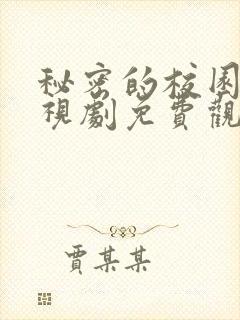 秘密的校园
視劇免費觀
賈某某